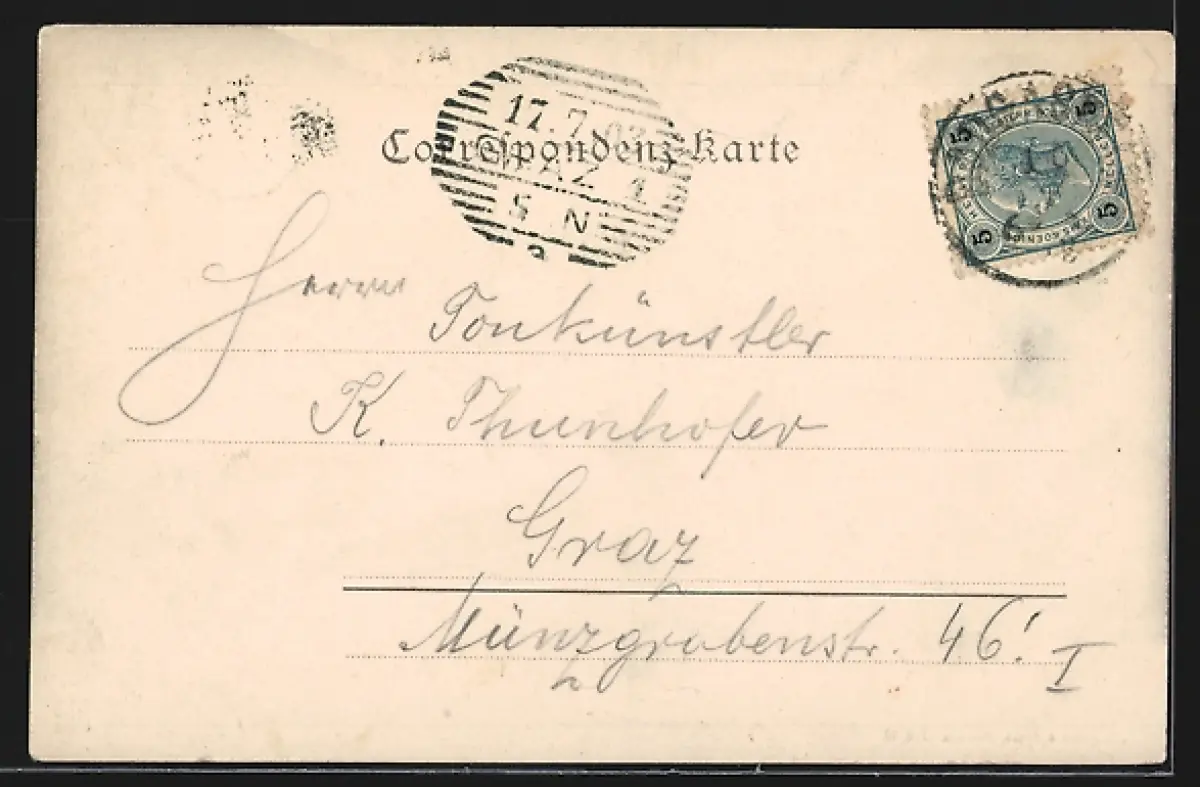 17.7.03
Correspondenz-Karte
GRAZ 1
5 N
5 5
5 5
Herrn Tonkünstler
K. Thunhofer
Graz
Münzgrabenstr. 46! I